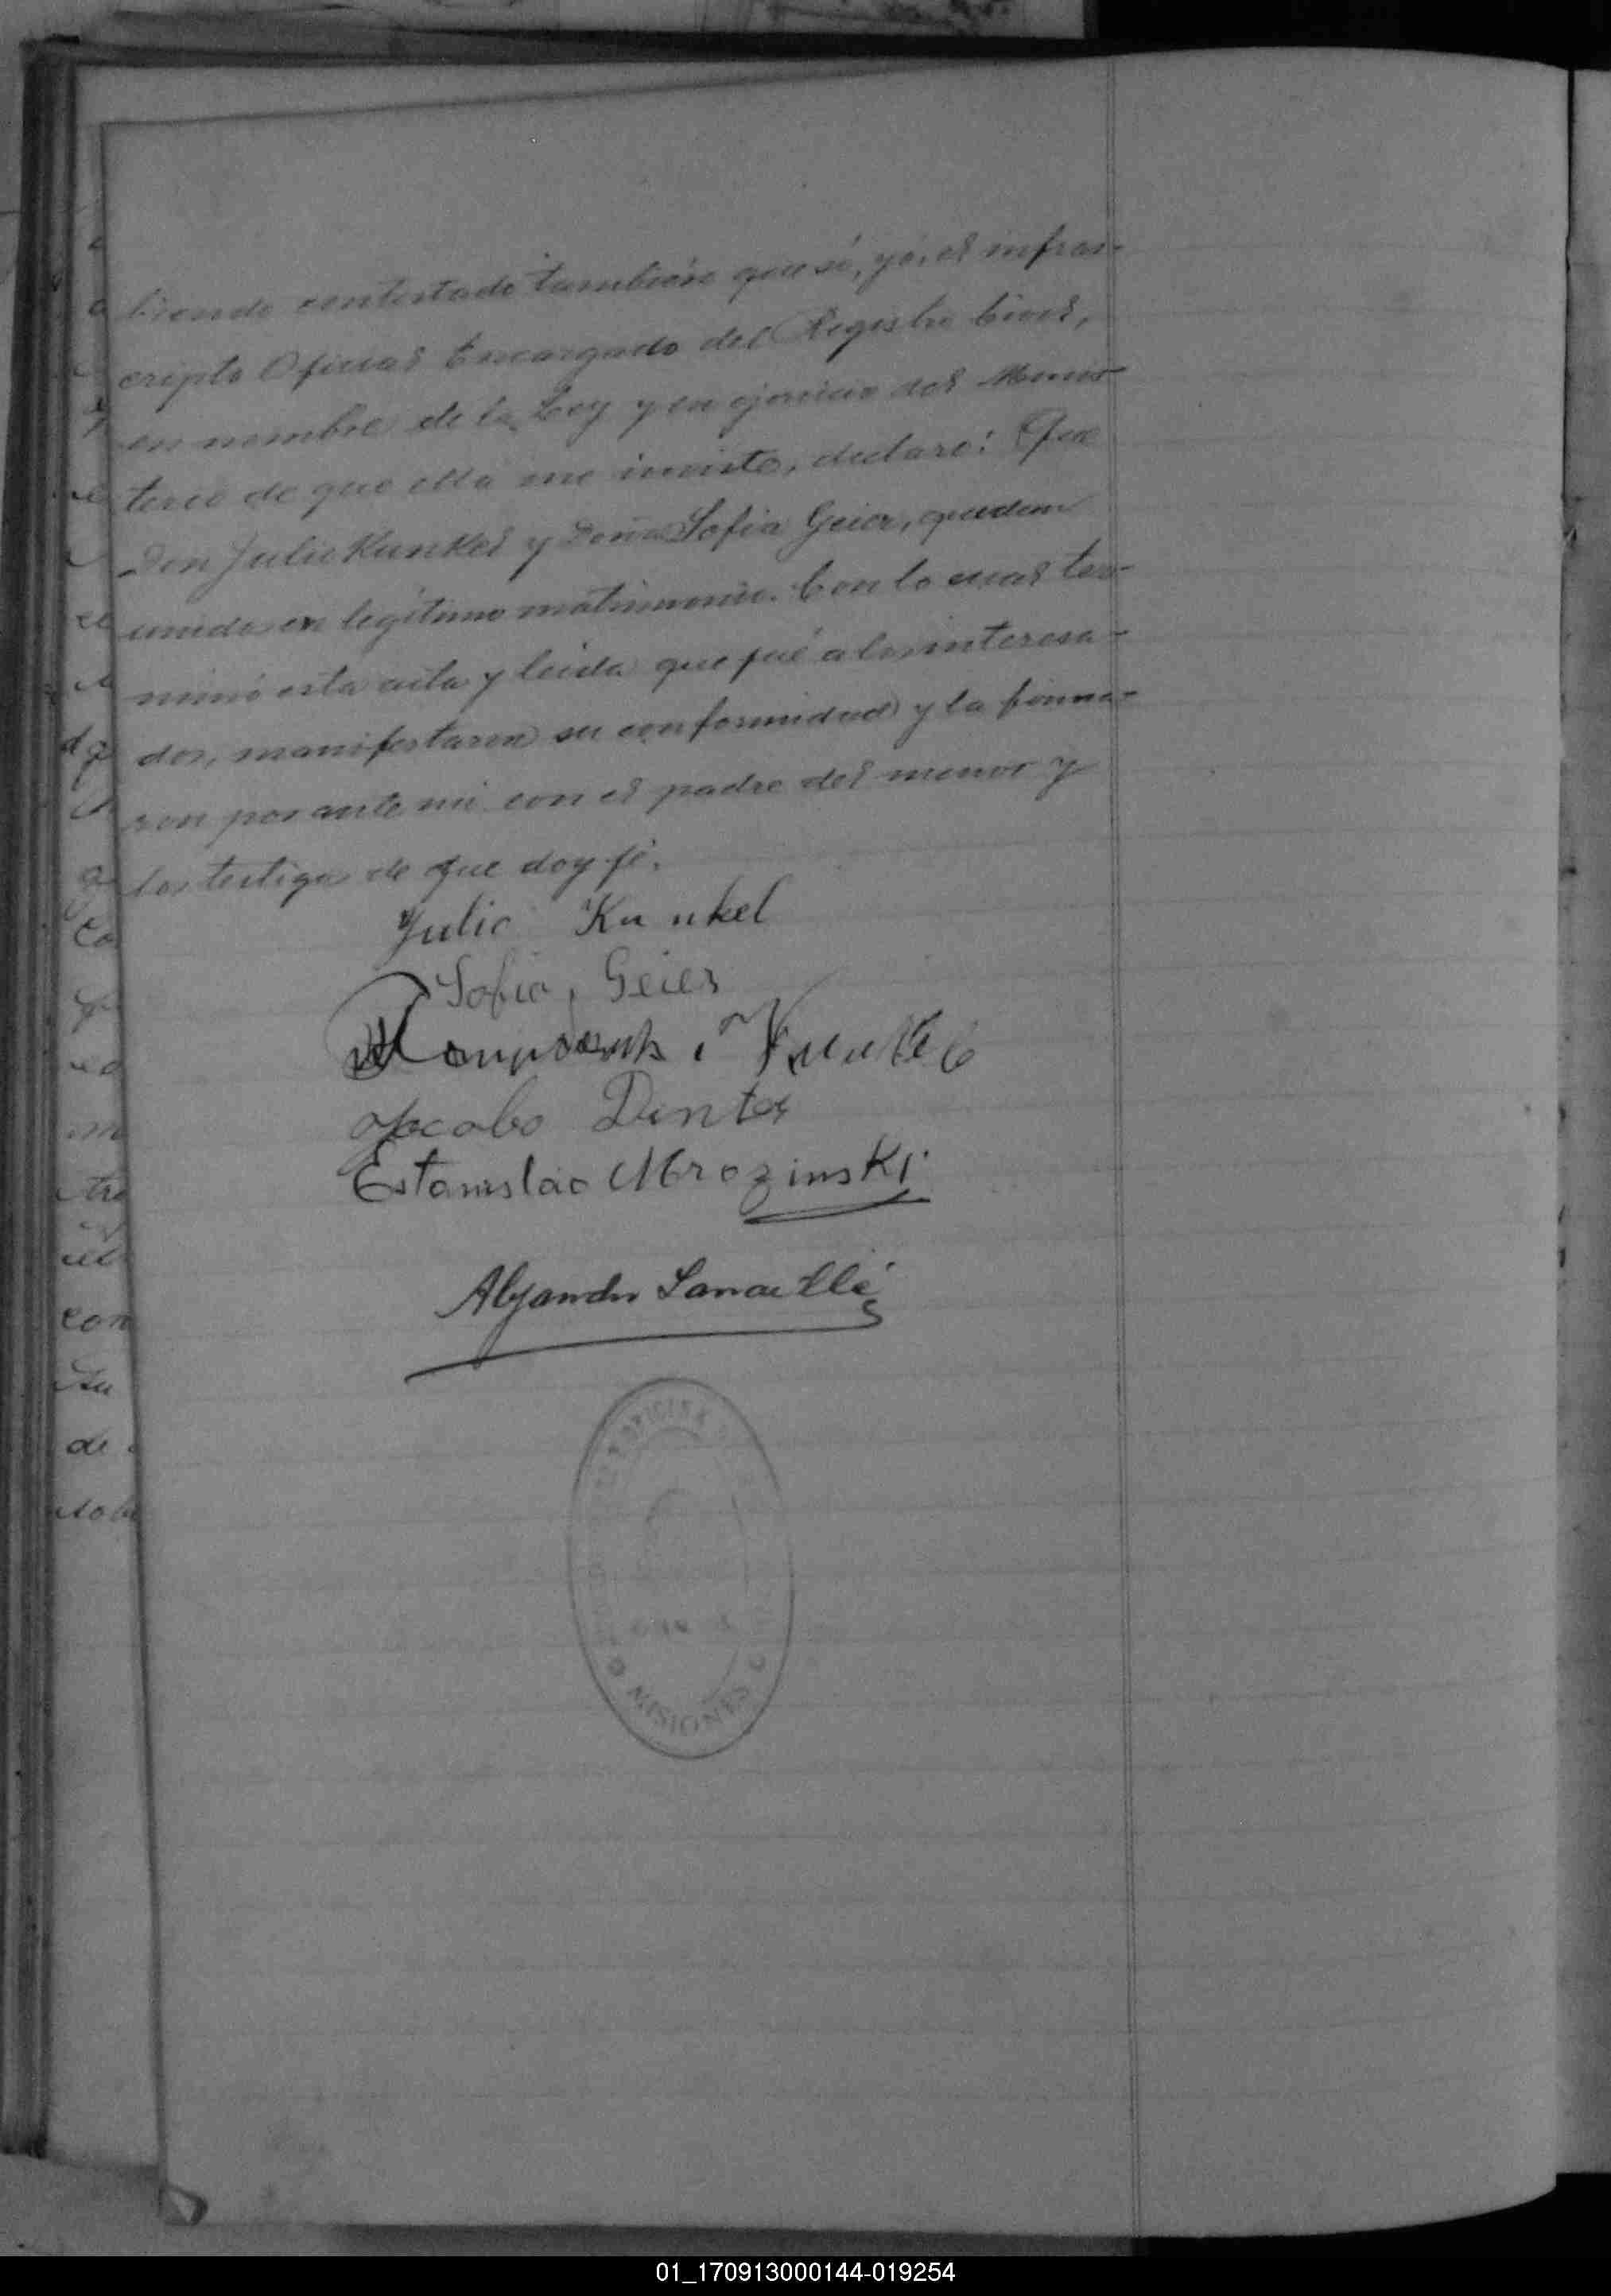 biendo contestado también que sí, yó, el infras-
cripto Oficial Encargado del Registro Civil,
en nombre de la Ley y en ejercicio del Minis-
terio de que ella me inviste, declaro: Que
Don Julio Kunkel y Doña Sofia Geier, quedan
unidos en legítimo matrimonio. Con lo cual ter-
minó esta acta y leida que fué a los interesa-
dos, manifestaron su conformidad y la firma-
ron por ante mi con el padre del menor y
los testigos de que doy fé.
Julio Kunkel
Sofia Geier
Kunkel
Jacobo Dentes
Estanislao Mrozinski
Alejandro
OFICINA
MISIONES
01_170913000144-019254